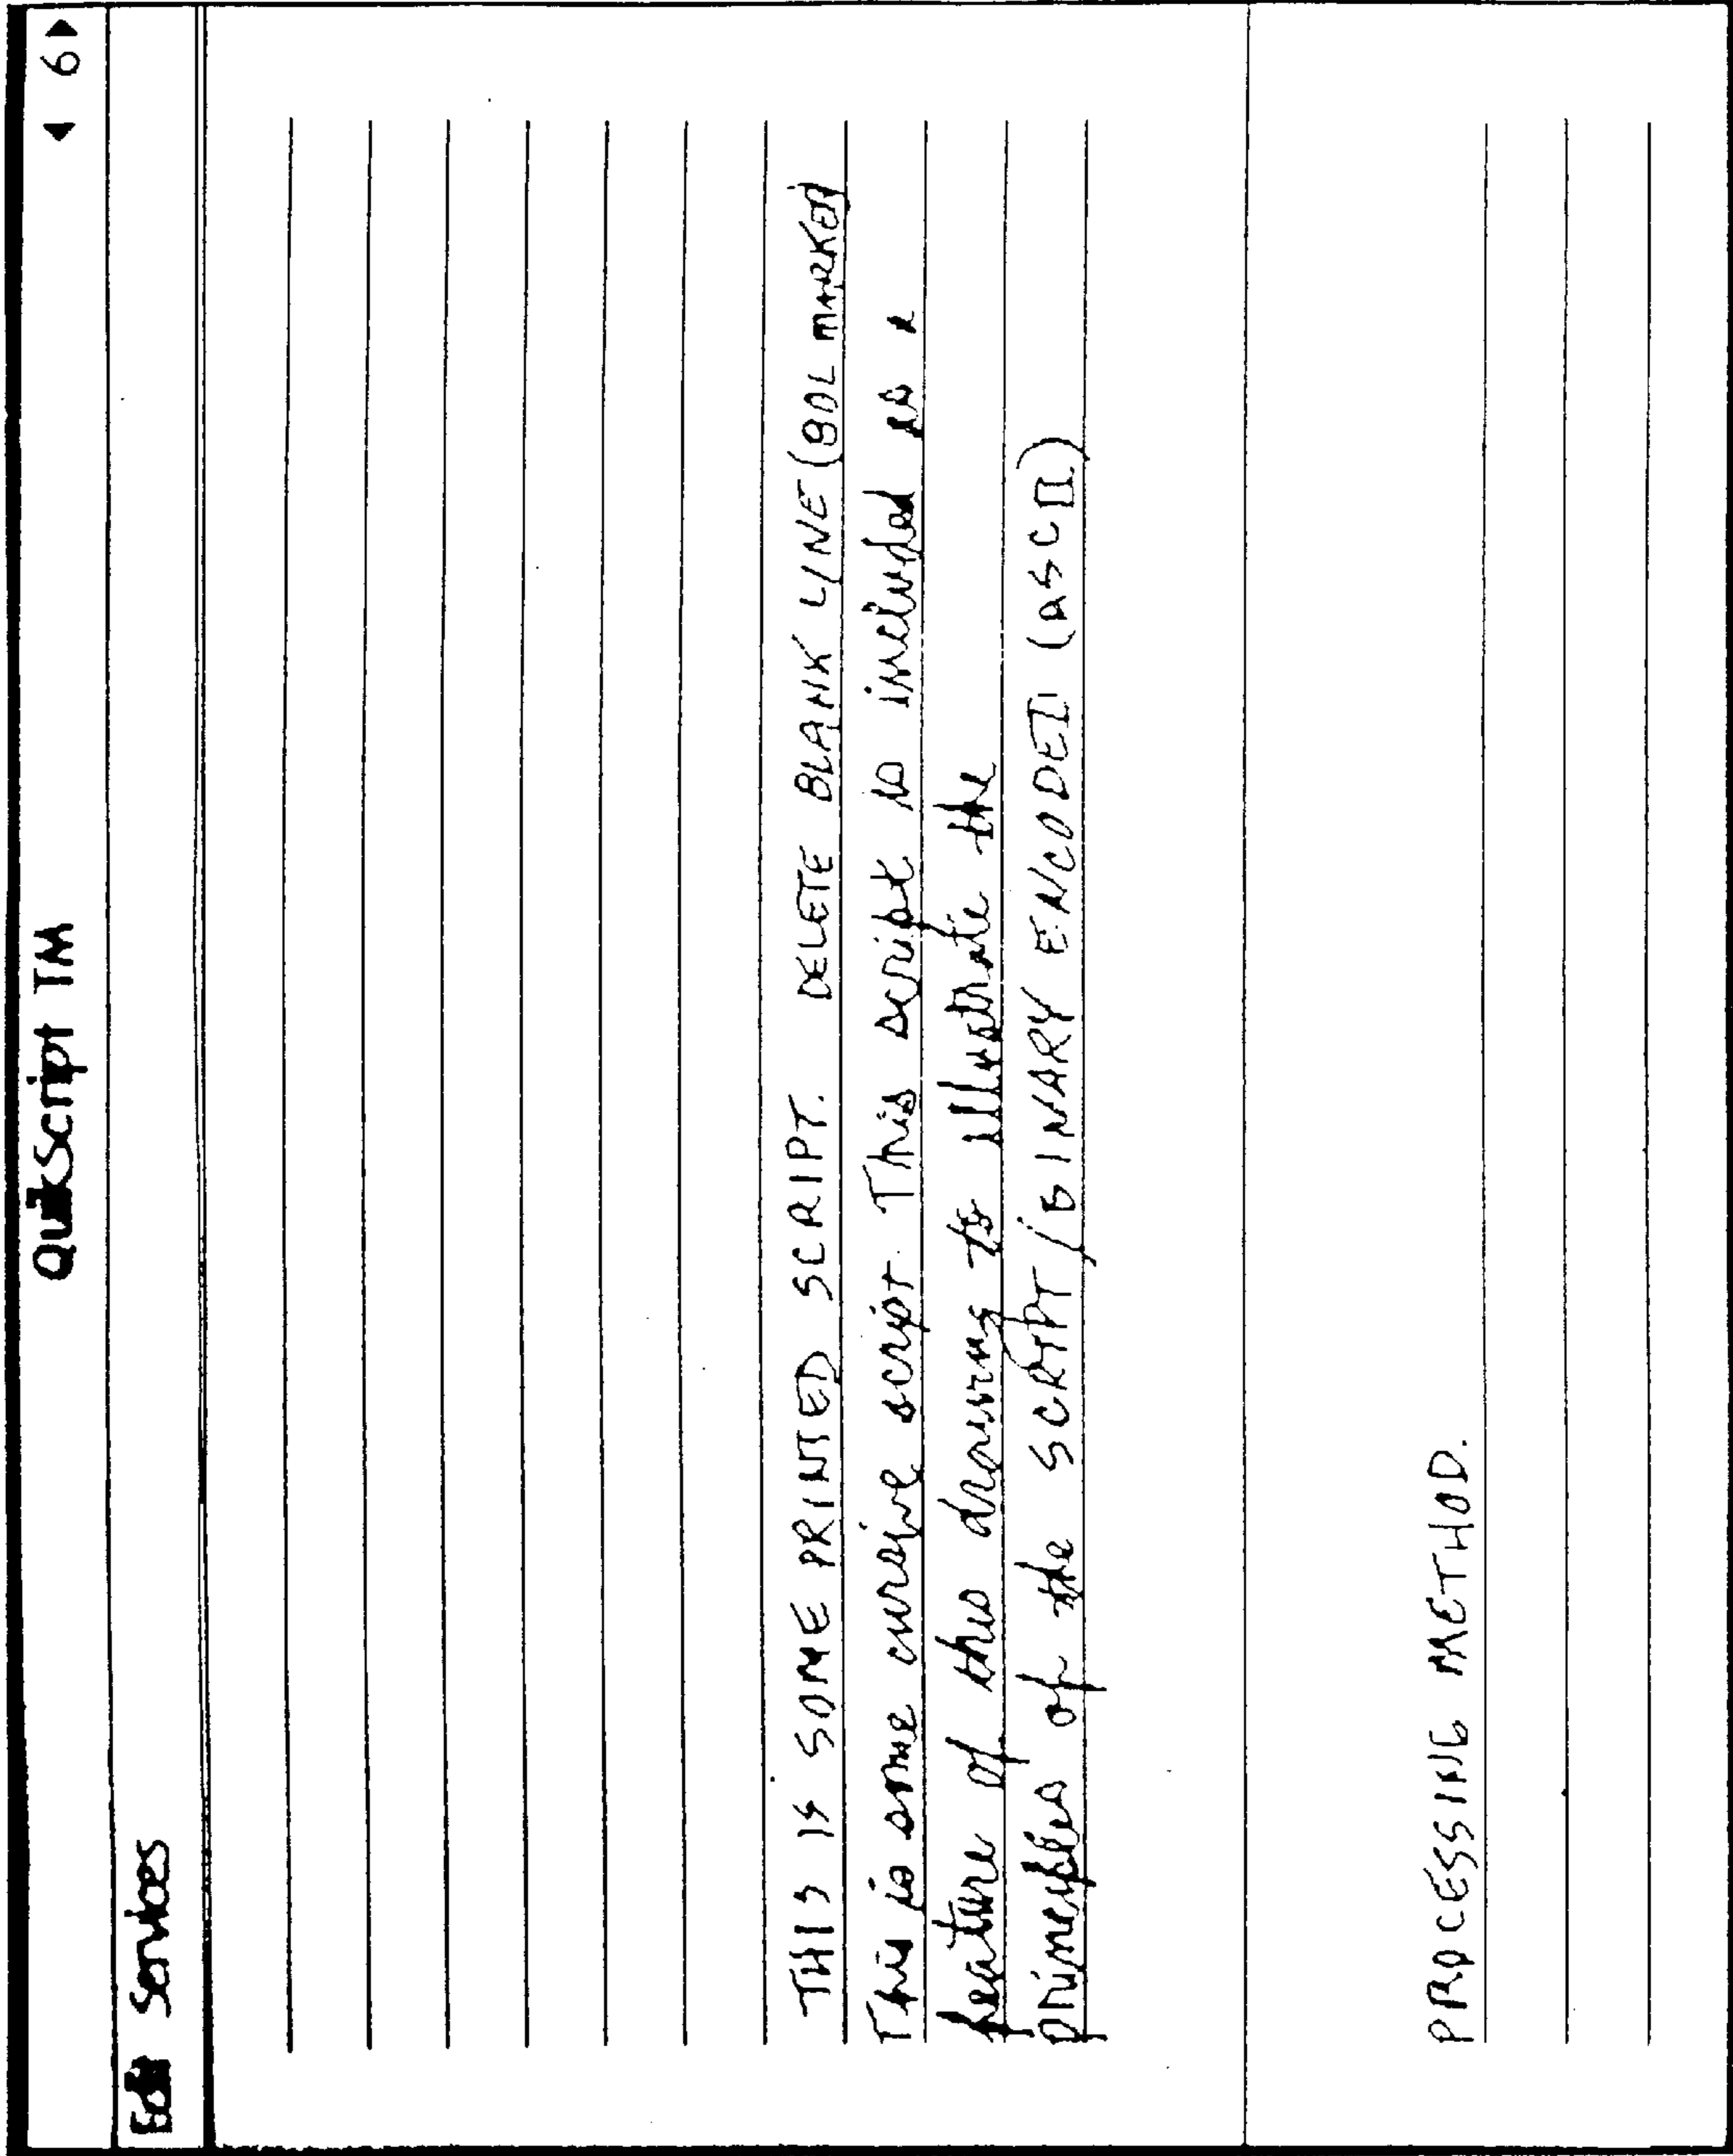 QuikScript TM ◀ 6 ▶
Edit Services
THIS IS SOME PRINTED SCRIPT. DELETE BLANK LINE (BOL MARKER)
This is some cursive script. This script is included as a
feature of this drawing to illustrate the
principles of the SCRIPT/BINARY ENCODED (ASCII)
PROCESSING METHOD.